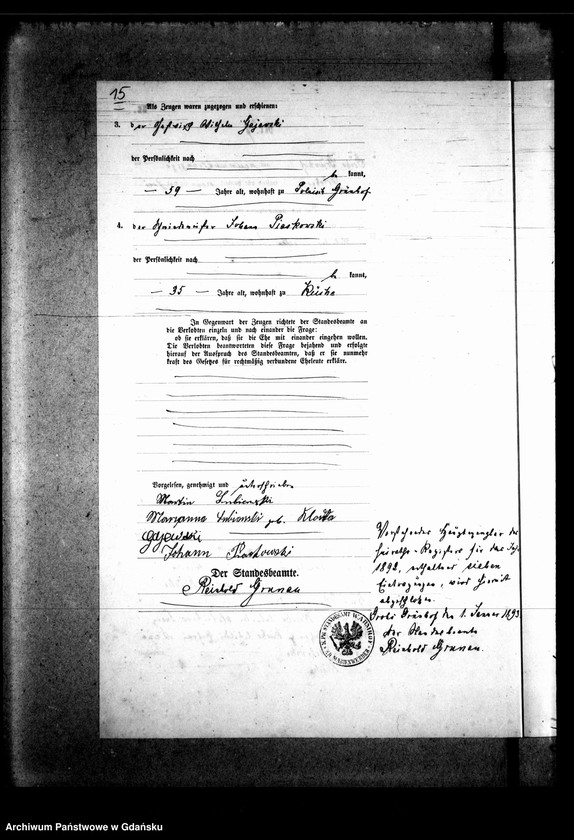 15
Als Zeugen waren zugezogen und erschienen:
3. der Gastwirt Wilhelm Gajewski
der Persönlichkeit nach
be kannt,
— 59 — Jahre alt, wohnhaft zu Polnisch Grünhof
4. der Johann Piaskowski
der Persönlichkeit nach
be kannt,
— 35 — Jahre alt, wohnhaft zu
In Gegenwart der Zeugen richtete der Standesbeamte an
die Verlobten einzeln und nach einander die Frage:
ob sie erklären, daß sie die Ehe mit einander eingehen wollen.
Die Verlobten beantworteten diese Frage bejahend und erfolgte
hierauf der Ausspruch des Standesbeamten, daß er sie nunmehr
kraft des Gesetzes für rechtmäßig verbundene Eheleute erkläre.
Vorgelesen, genehmigt und unterschrieben
Martin Lubienski
Maryanna Lubienski geb.
Gajewski
Johann Piaskowski
Der Standesbeamte.
Reinhold Grunau
Vorstehendes Hauptregister des
Heiraths-Registers für das Jahr
1892, enthaltend sieben
Eintragungen, wird hiermit
abgeschlossen.
Groß Grünhof den 1. Januar 1893
Der Standesbeamte
Reinhold Grunau.
Archiwum Państwowe w Gdańsku